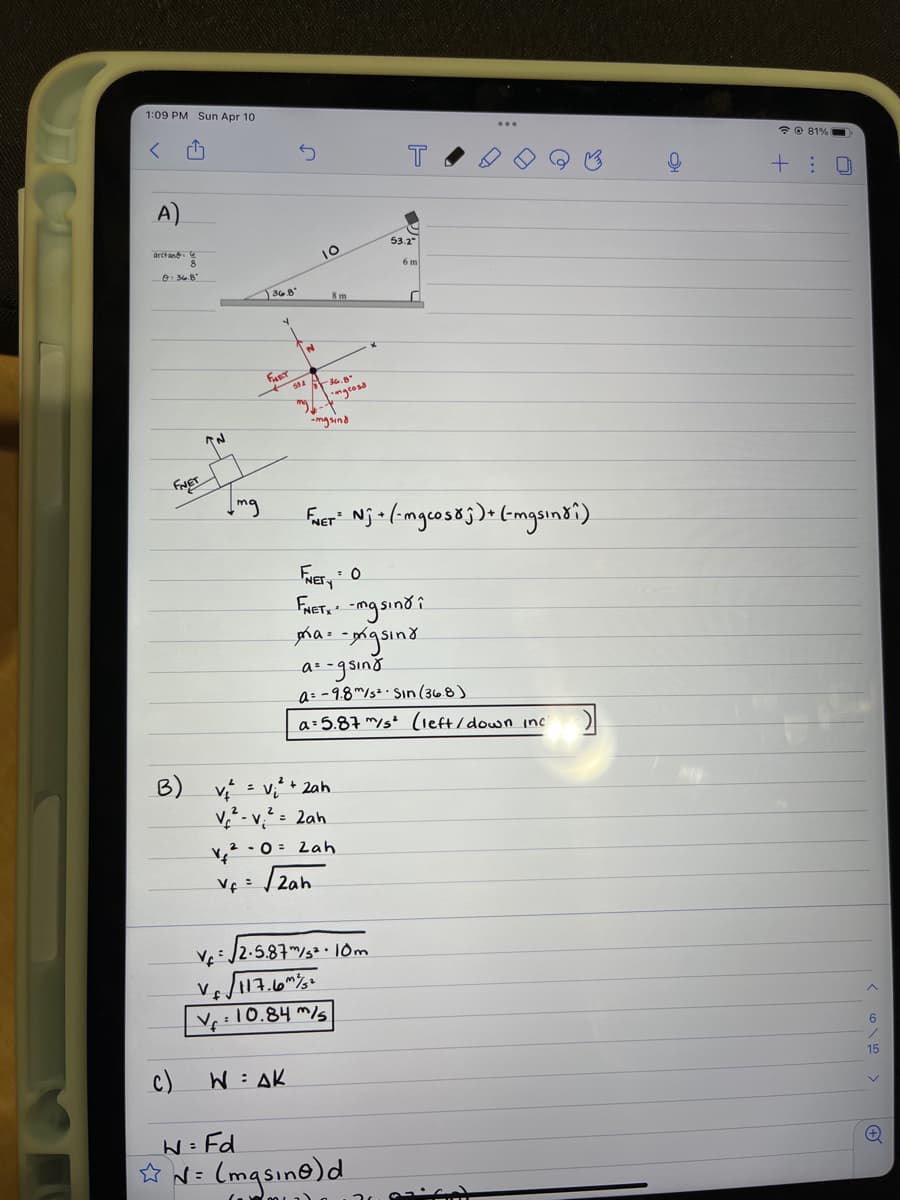 1:09 PM Sun Apr 10
81%
T
A)
arctanθ = 6/8
θ: 36.8°
10
53.2°
6 m
36.8°
8 m
Y
N
x
FNET
53.2
36.8°
-mgcosγ
mg
-mgsinγ
N
FNET
mg
FNET = Nĵ + (-mgcosγĵ) + (-mgsinγî)
FNETy = 0
FNETx = -mgsinγî
ma = -mgsinγ
a = -gsinγ
a = -9.8 m/s² · sin(36.8)
a = 5.87 m/s² (left/down inc )
B) vf² = vi² + 2ah
vf² - vi² = 2ah
vf² - 0 = 2ah
vf = √2ah
vf = √2·5.87 m/s² · 10m
vf √117.6 m²/s²
vf = 10.84 m/s
6
/
15
C) W = ΔK
W = Fd
W = (mgsinθ)d